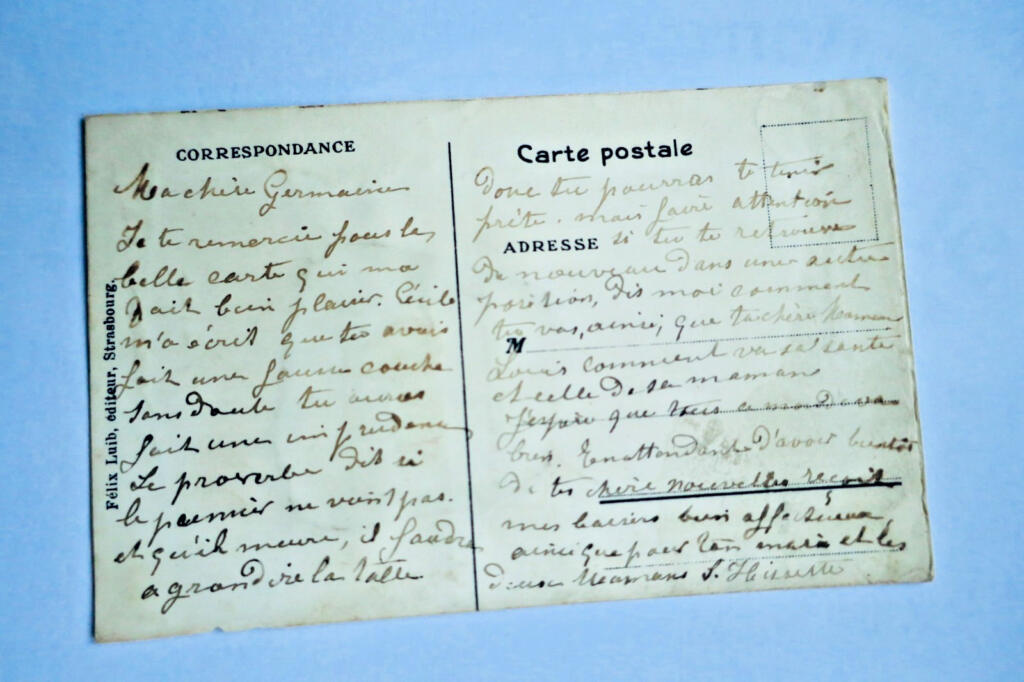 CORRESPONDANCE
Ma chère Germaine
Je te remercie pour la
belle carte qui ma
fait bien plaisir. Cécile
m'a écrit que tu avais
fait une fausse couche
sans doute tu auras
fait une imprudence
Le proverbe dit si
le premier ne vient pas.
et qu'il meure, il faudra
agrandire la table
Félix Luib, éditeur, Strasbourg.
Carte postale
Donc tu pourras te tenir
prête. mais faire attention
ADRESSE
si tu te retrouve
de nouveau dans une autre
position, dis moi comment
tu vas, ainsi, que ta chère Maman
M
Louis comment va sa santé
et celle de sa maman
J'espère que tous
bien. En attendant d'avoir bientôt
de tes chère nouvelles reçoit
mes baisers bien affectueux
ainsi que pour ton mari et les
deux Mamans